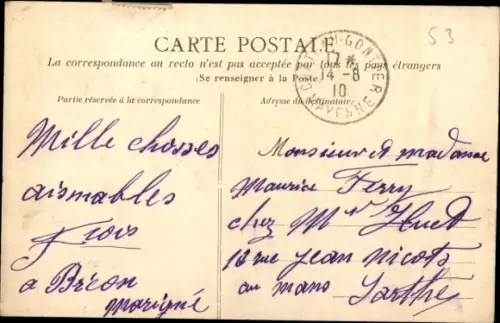 53
CARTE POSTALE
La correspondance au recto n'est pas acceptée par tous les pays étrangers
(Se renseigner à la Poste)
Partie réservée à la correspondance
Adresse du destinataire
17 *
14 - 8
10
MAYENNE
Mille choses
aismables
à Bréon
Marigné
Monsieur et madame
Maurice Ferry
chez Mr Huet
12 rue Jean Nicots
au mans Sarthe